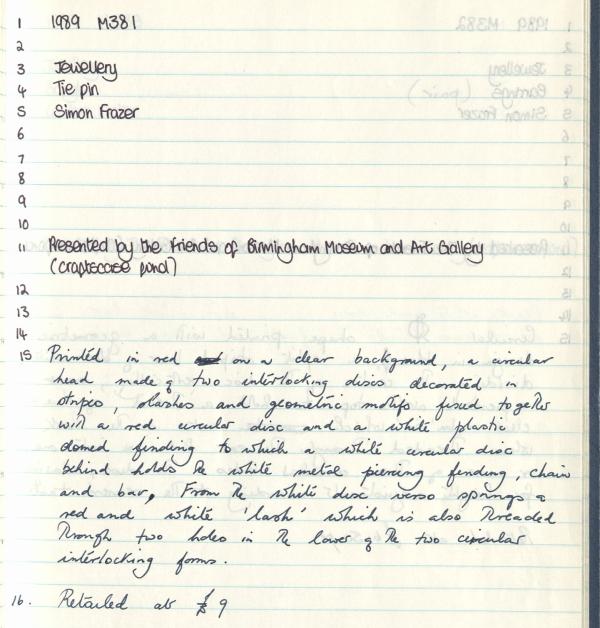 1 1989 M381
2
3 Jewellery
4 Tie pin
5 Simon Frazer
6
7
8
9
10
11 Presented by the Friends of Birmingham Museum and Art Gallery
(craftscase fund)
12
13
14
15 Printed in red on a clear background, a circular
head made of two interlocking discs decorated in
stripes, slashes and geometric motifs fused together
with a red circular disc and a white plastic
domed finding to which a white circular disc
behind holds the white metal piercing fending, chain
and bar, From the white disc verso springs a
red and white 'lash' which is also threaded
through two holes in the lower of the two circular
interlocking forms.
16. Retailed at £9